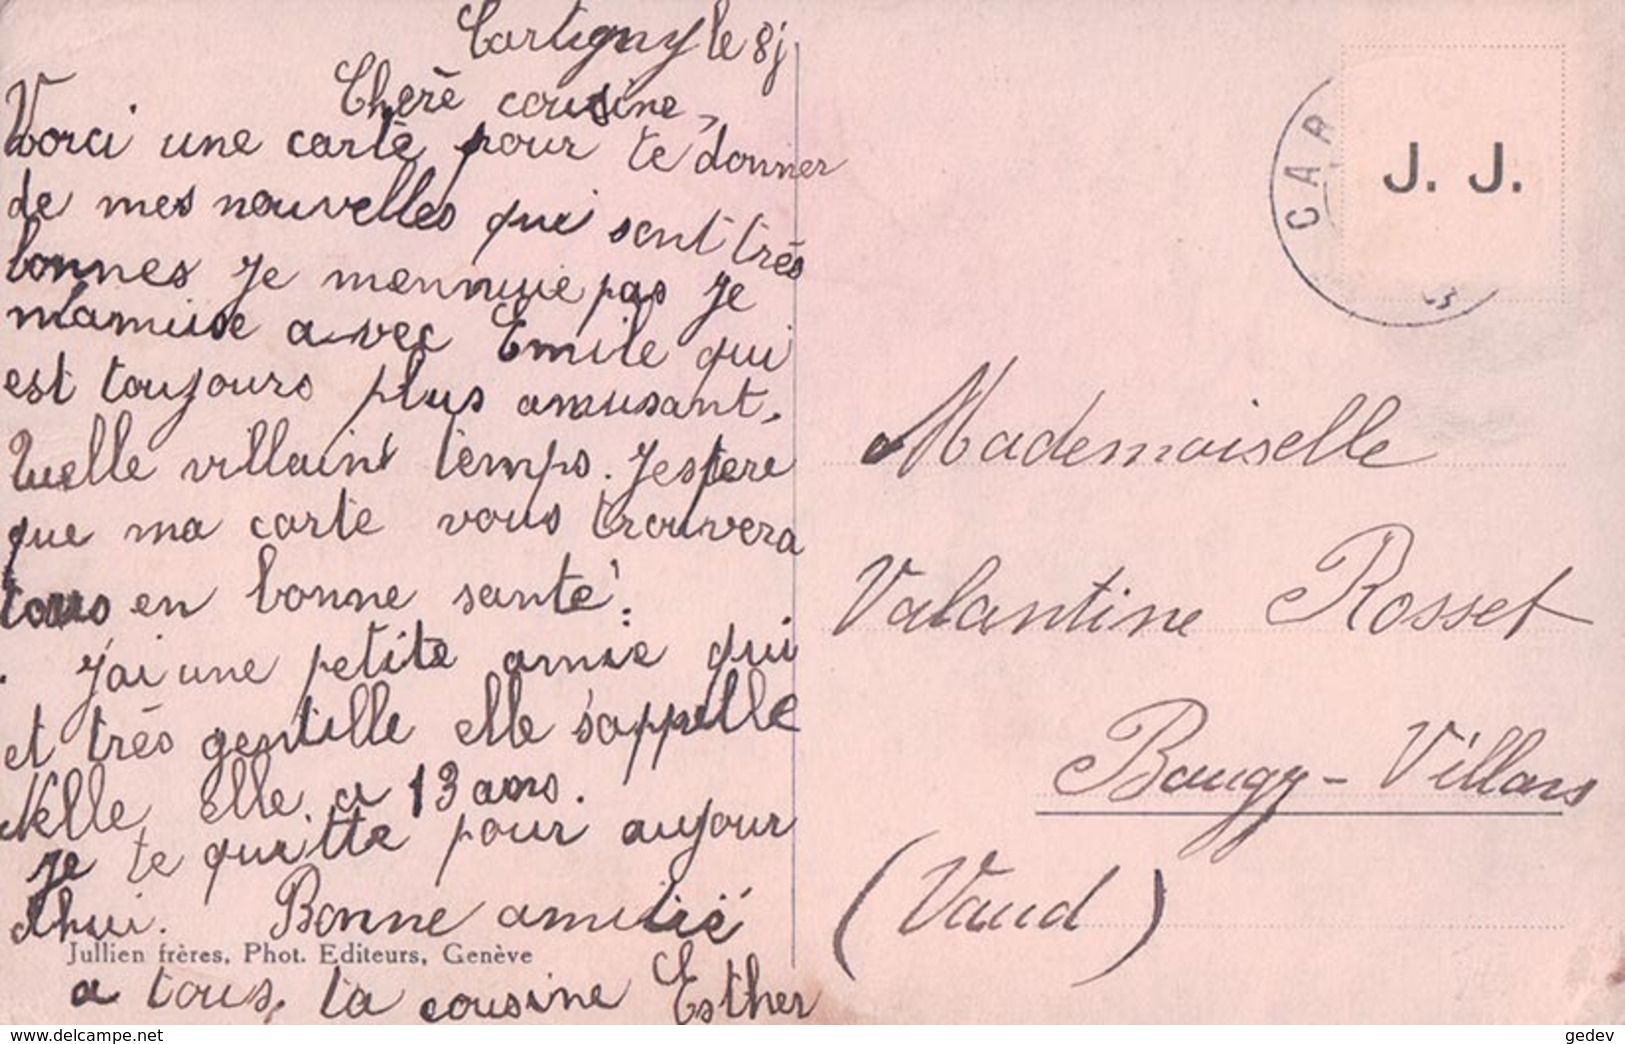 Cartigny le 8 j
Chère cousine,
Voici une carte pour te donner
de mes nouvelles qui sont très
bonnes je mennuie pas je
m'amuse avec Emile qui
est toujours plus amusant.
Quelle villaint temps. Jespere
que ma carte vous trouvera
tous en bonne santé.
J'ai une petite amie qui
et très gentille elle s'appelle
Nelle elle a 13 ans.
je te quitte pour aujour
d'hui. Bonne amitié
Jullien frères, Phot. Editeurs, Genève
a tous. ta cousine Esther
CAR
J. J.
Mademoiselle
Valantine Rosset
Bougy-Villars
(Vaud)
https://www.delcampe.net
gedev